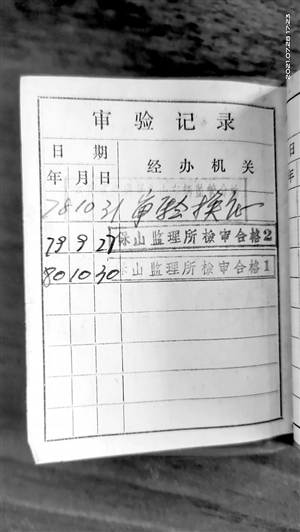 审验记录
日 期
经办机关
年 月 日
78 10 31 审验换证
79 9 27 保山监理所檢审合格2
80 10 30 保山监理所檢审合格1
2021.07.28 17:23